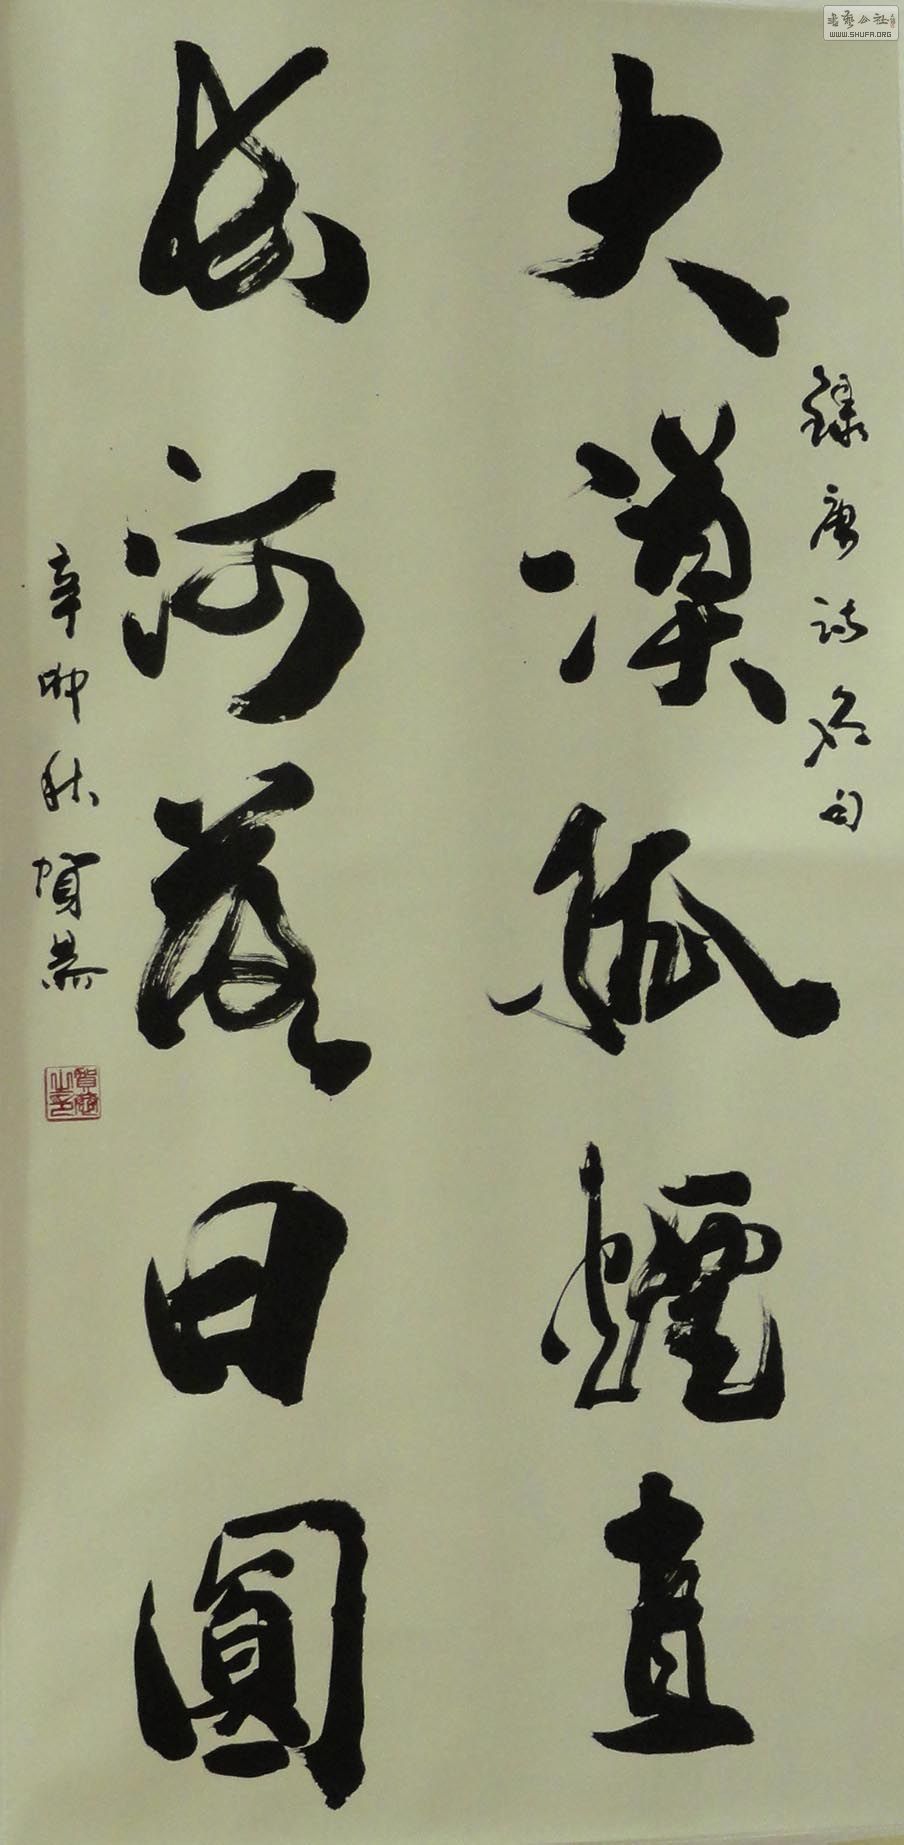 錄唐詩名句
大漠孤煙直
長河落日圓
辛卯秋賀
書藝公社
WWW.SHUFA.ORG